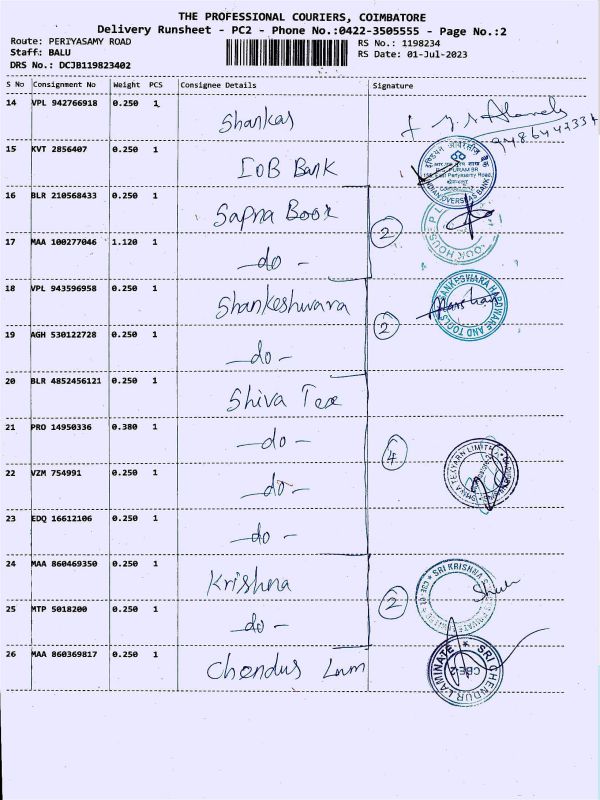 THE PROFESSIONAL COURIERS, COIMBATORE
Delivery Runsheet - PC2 - Phone No.:0422-3505555 - Page No.:2
Route: PERIYASAMY ROAD
Staff: BALU
DRS No.: DCJB119823402
RS No.: 1198234
RS Date: 01-Jul-2023
S No Consignment No Weight PCS Consignee Details Signature
14 VPL 942766918 0.250 1 Shankar
15 KVT 2856407 0.250 1 IOB Bank
INDIAN OVERSEAS BANK
16 BLR 210568433 0.250 1 Sapna Book
2
17 MAA 100277046 1.120 1 -do-
18 VPL 943596958 0.250 1 Shankeshwara
2
SHANKESWARA HARDWARE AND TOOLS
19 AGH 530122728 0.250 1 -do-
20 BLR 4852456121 0.250 1 Shiva Tex
21 PRO 14950336 0.380 1 -do-
4
SHIVA TEXYARN LIMITED
22 VZM 754991 0.250 1 -do-
23 EDQ 16612106 0.250 1 -do-
24 MAA 860469350 0.250 1 Krishna
2
SRI KRISHNA
25 MTP 5018200 0.250 1 -do-
26 MAA 860369817 0.250 1 Chendur Lam
SRI CHENDUR LAMINATE
CBE-2